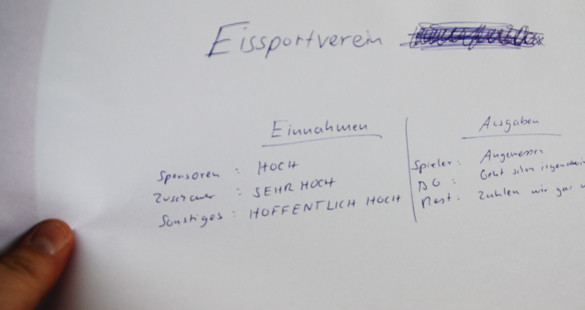 Eissportverein
Einnahmen
Sponsoren : HOCH
Zuschauer : SEHR HOCH
Sonstiges : HOFFENTLICH HOCH
Ausgaben
Spieler : Angemessen
BG : Geht schon irgendwie
Rest : Zahlen wir gar